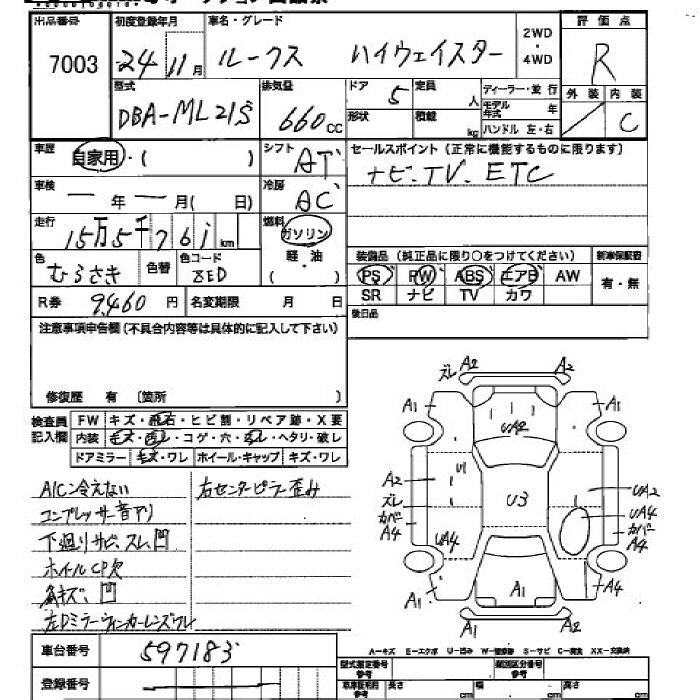 出品番号 初度登録年月 車名・グレード 2WD・4WD 評価点
7003 24年11月 ルークス ハイウェイスター R
型式 排気量 ドア 定員 ディーラー・並行 外装 内装
DBA-ML21S 660cc 5 人 モデル年式 年 C
形状 積載 kg ハンドル 左・右
車歴 自家用・( ) シフト AT セールスポイント(正常に機能するものに限ります)
ナビ・TV・ETC
車検 ー年ー月( 日) 冷房 AC
走行 15万5千761km 燃料 ガソリン 軽・油 ( )
装備品(純正品に限り○をつけてください) 新車保証書
色 むらさき 色替 色コード 8ED
PS PW ABS エアB AW 有・無
SR ナビ TV カワ
R券 9,460円 名変期限 月 日
後日品
注意事項申告欄(不具合内容等は具体的に記入して下さい)
修復歴 有 〔箇所 〕
検査員記入欄 FW キズ・飛石・ヒビ割・リペア跡・X要
内装 キズ・・コゲ・穴・・ヘタリ・破レ
ドアミラー キズ・ワレ ホイール・キャップ キズ・ワレ
A/C冷えない 右センターピラー歪み
コンプレッサー音アリ
下廻りサビ、スレ、凹
ホイルCP欠
キズ、凹
左Dミラーウィンカーレンズワレ
ズレ A2 A2
A1 A1
UA2
U1
A2 UA2
ズレ U3 UA4
カバー カバー
A4 UA4 A4
A1 A1 A4
A1 ズレ
A2
A-キズ E-エクボ U-凹み W-補修跡 S-サビ C-腐食 XX-交換済
車台番号 597183
型式指定番号 参考 類別区分番号 参考
登録番号
長さ cm 幅 cm 高さ cm